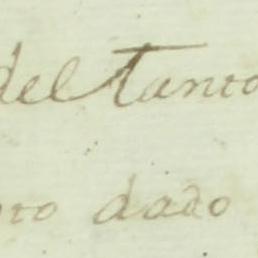 del tanto
dado